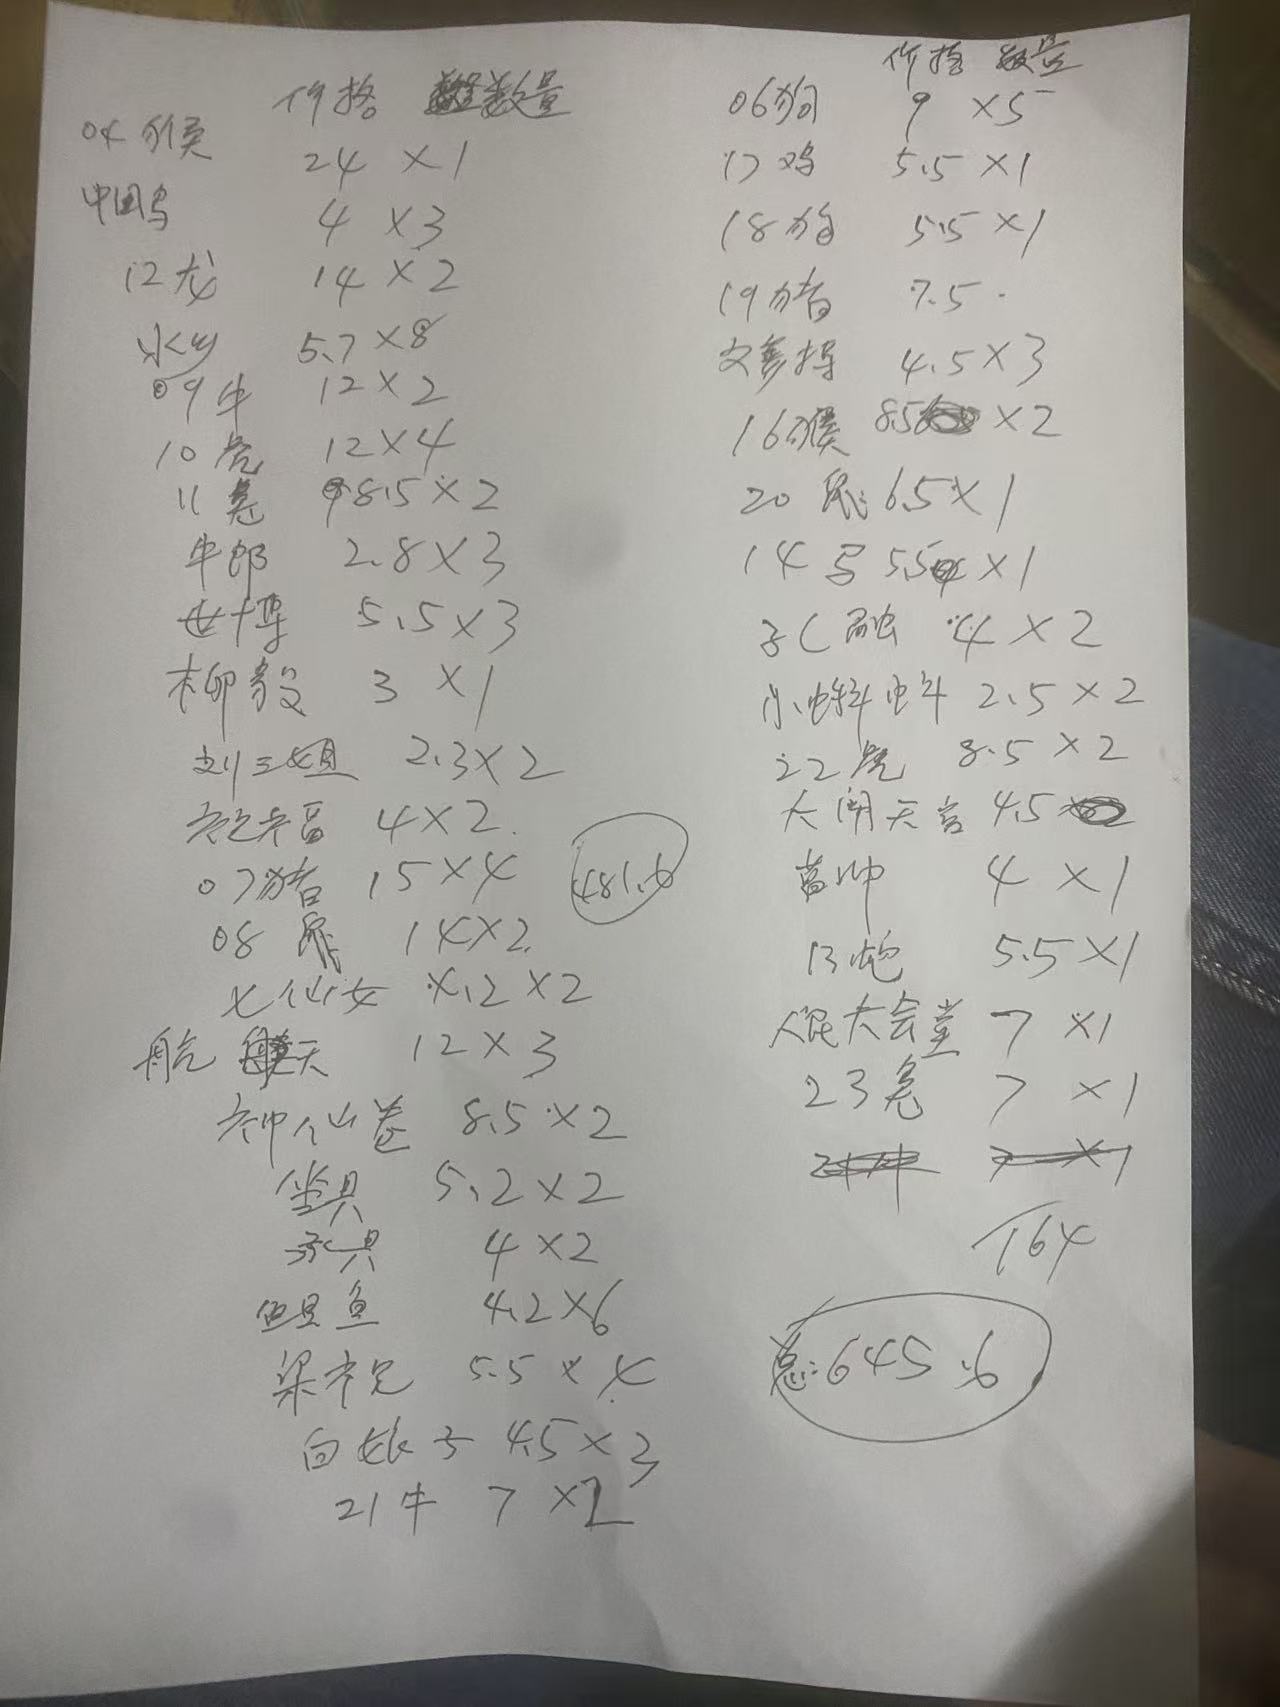 价格 数量
04猴 24 ×1
中国鸟 4 ×3
12龙 14 ×2
水乡 5.7 ×8
09牛 12 ×2
10虎 12 ×4
11兔 8.5 ×2
牛郎 2.8 ×3
世博 5.5 ×3
柳毅 3 ×1
刘三姐 2.3 ×2
4 ×2
07猪 15 ×4
481.6
08鼠 14 ×2
七仙女 4.2 ×2
航天 12 ×3
神仙卷 8.5 ×2
坐具 5.2 ×2
承具 4 ×2
鲲鱼 4.2 ×6
梁祝 5.5 ×4
白娘子 4.5 ×3
21牛 7 ×2
价格 数量
06狗 9 ×5
17鸡 5.5 ×1
18狗 5.5 ×1
19猪 7.5
文彦博 4.5 ×3
16猴 8.5 ×2
20鼠 6.5 ×1
14马 5.5 ×1
孔融 4 ×2
小蝌蚪 2.5 ×2
22虎 8.5 ×2
大闹天宫 4.5
曹冲 4 ×1
13蛇 5.5 ×1
人民大会堂 7 ×1
23兔 7 ×1
164
总:645.6